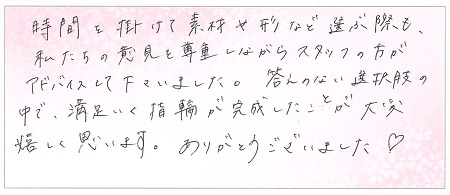 時間を掛けて素材や形など選ぶ際も、
私たちの意見を尊重しながらスタッフの方が
アドバイスして下さいました。答えのない選択肢の
中で、満足いく指輪が完成したことが大変
嬉しく思います。ありがとうございました♡